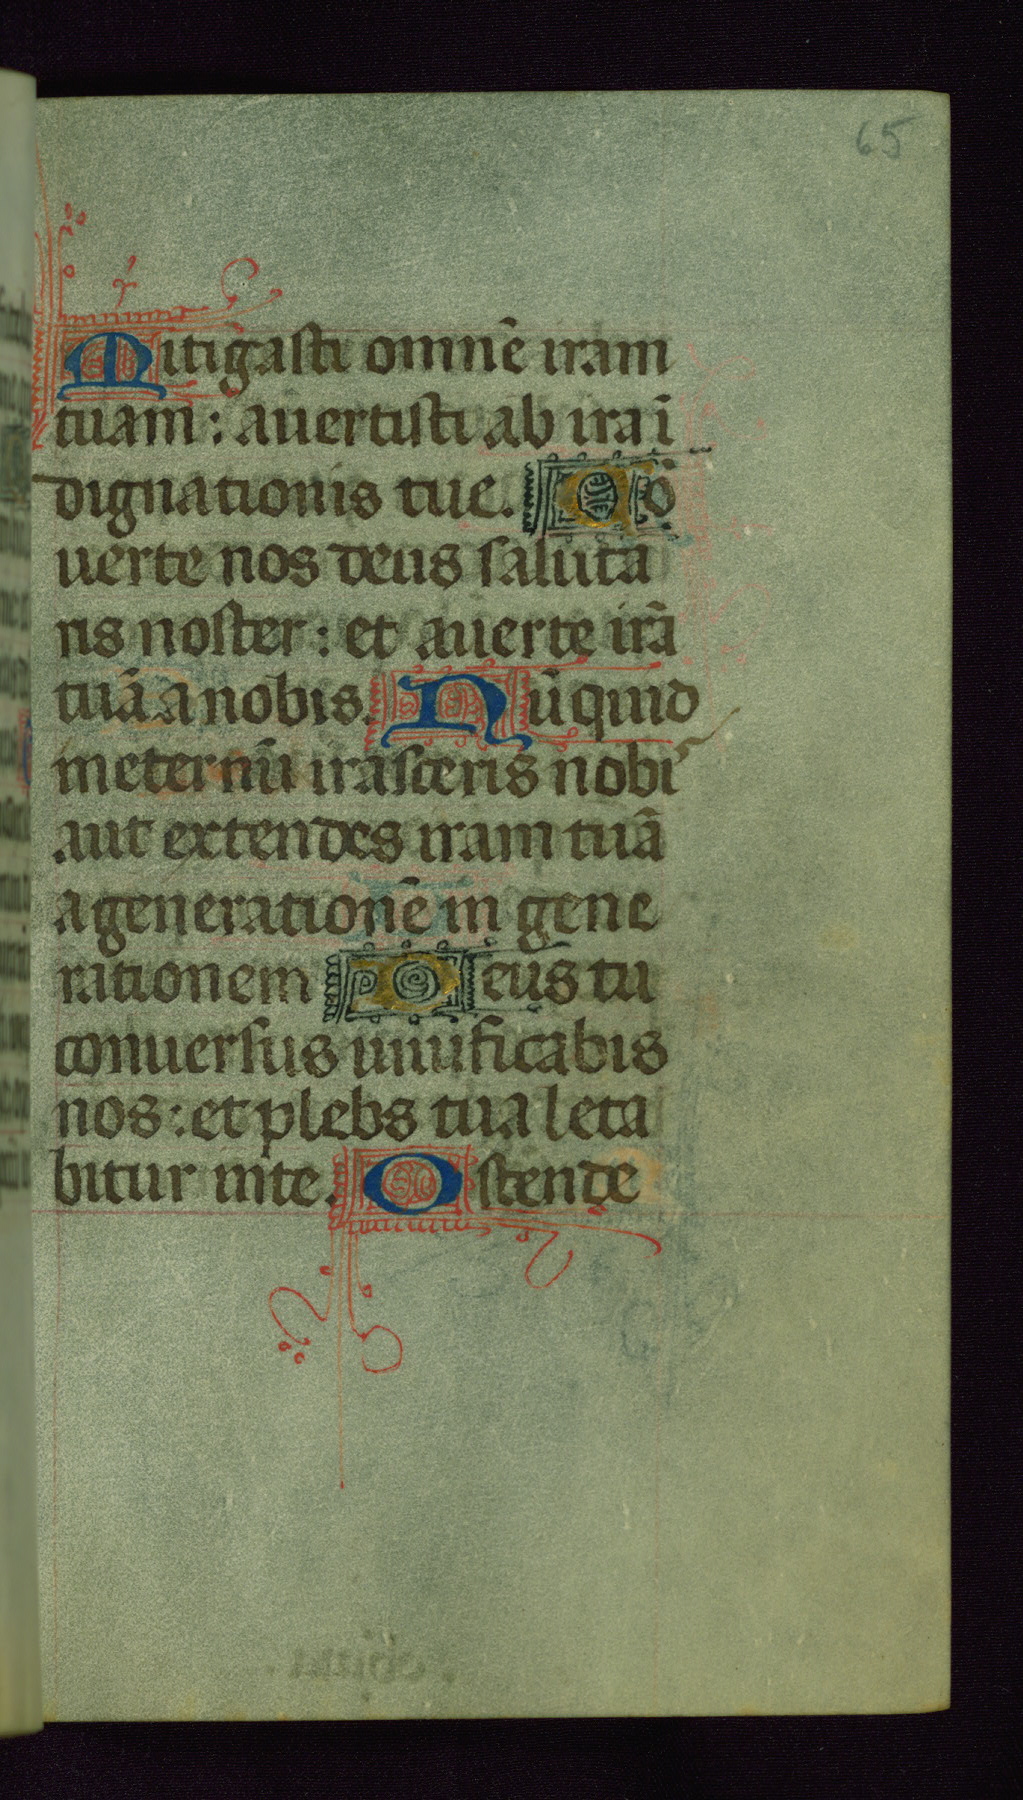 65
Mitigasti omnē iram
tuam : auertisti ab ira ī
dignationis tue. Cō
uerte nos deus saluta
ris noster : et auerte irā
tuā a nobis. Nū quid
in eternū irasceris nobi᷒
aut extendes iram tuā
a generationē in gene
rationem Deus tu
conuersus uiuificabis
nos : et plebs tua leta
bitur in te. Ostende